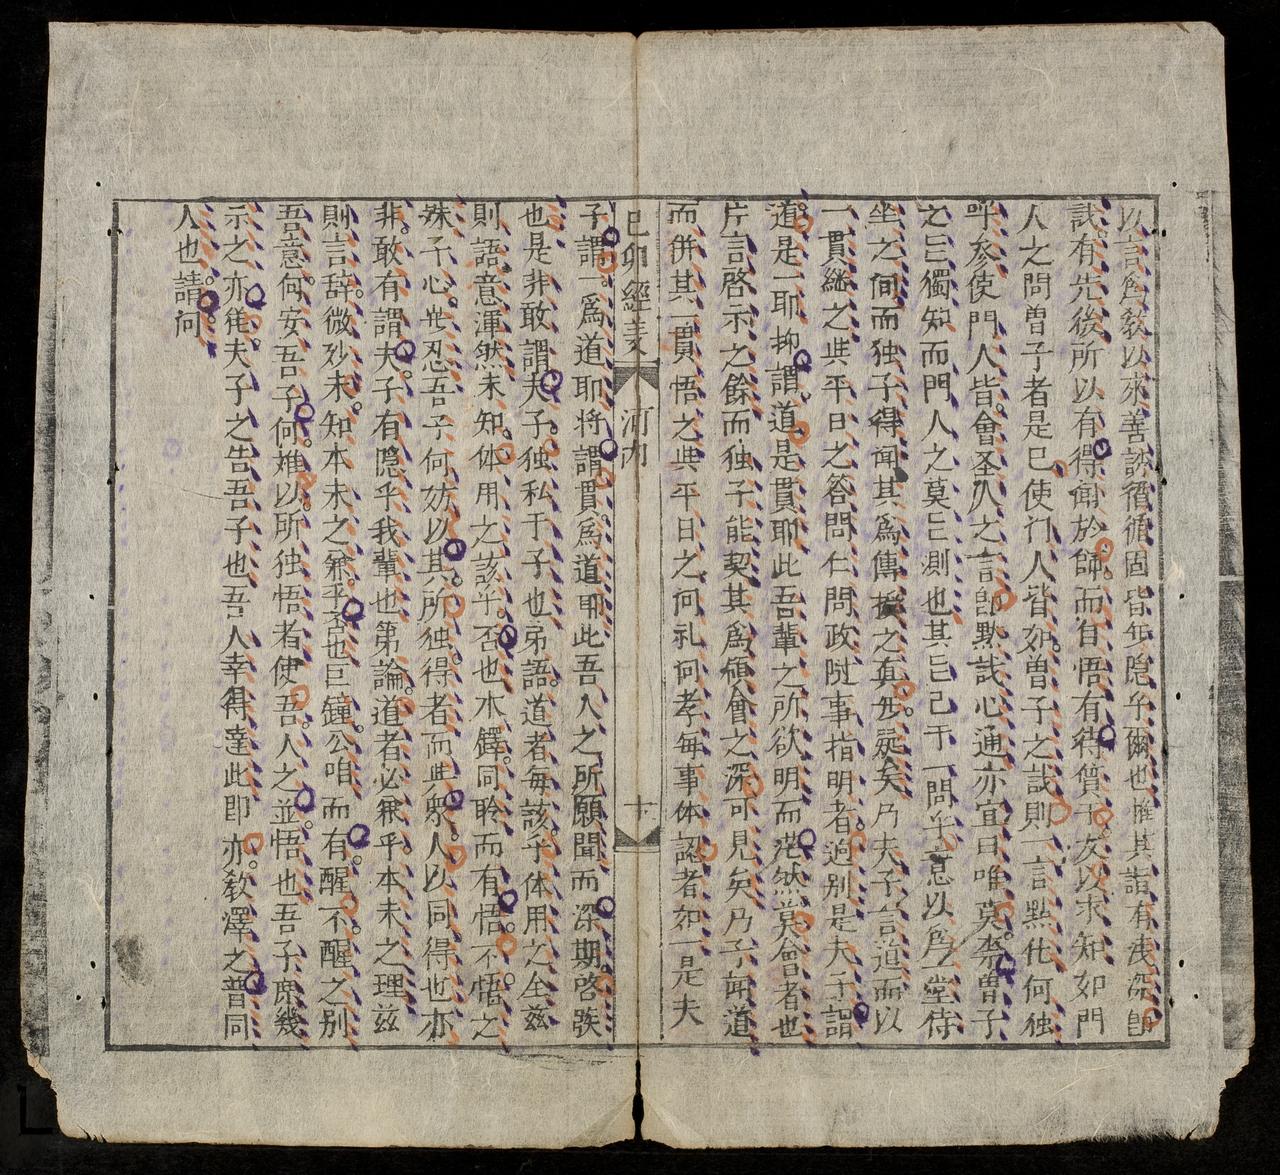 以言爲敎以來善誘循循固皆無隐乎爾也惟其詣有浅深卽
誠有先後所以有得聞於師而自悟有待質于友以求知如門
人之問曽子者是已使门人皆如曽子之誠則一言點化何独
呼参使門人皆會圣人之言卽黙誠心通亦宜曰唯莫柰曽子
之㫖獨知而門人之莫㫖測也其㫖已于一問乎意以爲一堂侍
坐之何而独子得闻其爲傳授之真必㝵矣乃夫子言道而以
一貫継之與平日之答問仁問政隨事指明者逈别是夫子謂
道是一耶抑謂道是貫耶此吾輩之所欲明而茫然莫會者也
片言啓示之餘而独子能契其爲領會之深可見矣乃子闻道
而併其一貫悟之與平日之问礼问孝每事体認者如一是夫
己卯經義 河内 十
子謂一爲道耶将謂貫爲道耶此吾人之所願聞而深期啓發
也是非敢謂夫子独私于子也弟語道者每該乎体用之全兹
則語意渾然未知体用之該乎否也木鐸同聆而有悟不悟之
殊子心豈忍吾子何妨以其所独得者而與衆人以同得也亦
非敢有謂夫子有隐乎我輩也第論道者必兼乎本末之理兹
則言辞微妙未知本末之兼乎否也巨鐘公咱而有醒不醒之别
吾意何安吾子何难以所独悟者使吾人之並悟也吾子庶幾
示之亦犹夫子之告吾子也吾人幸得達此卽亦敎澤之普同
人也請问